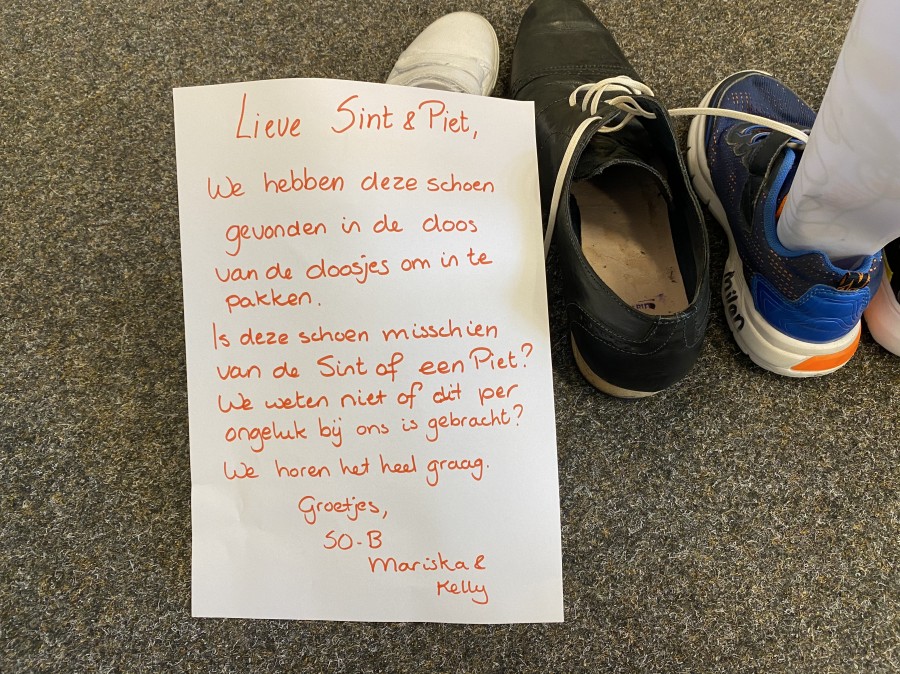 Lieve Sint & Piet,
We hebben deze schoen
gevonden in de doos
van de doosjes om in te
pakken.
Is deze schoen misschien
van de Sint of een Piet?
We weten niet of dit per
ongeluk bij ons is gebracht?
We horen het heel graag.
Groetjes,
SO-B
Mariska &
Kelly
milan